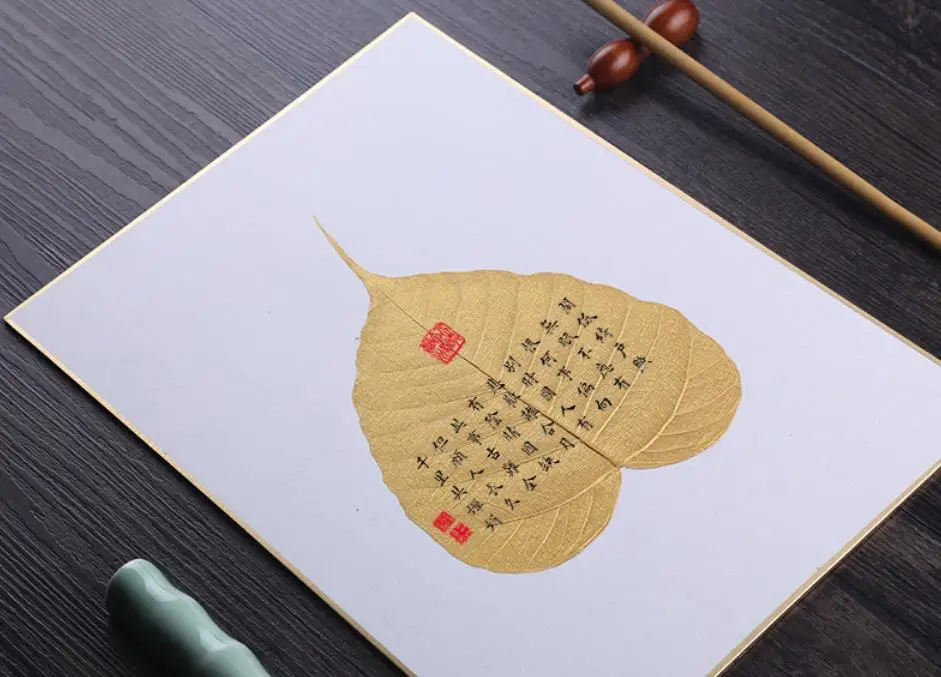 閣低綺戶照
無眠不應有
恨何事偏向
別時圓人有
悲歡離合月
有陰晴圓缺
此事古難全
但願人長久
千里共嬋娟